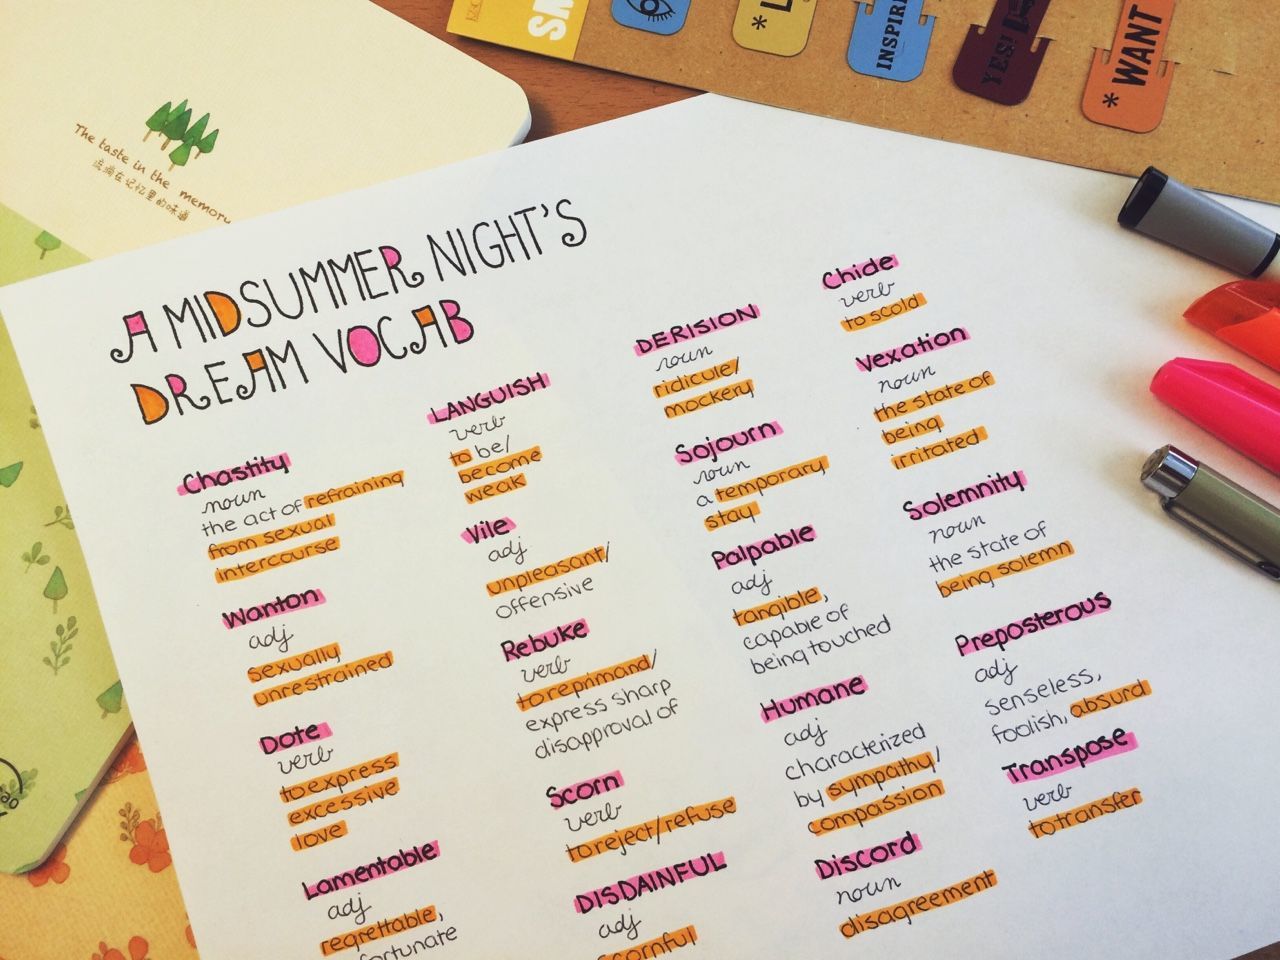 The taste in the memory
流淌在记忆里的味道
SM
* L
INSPIRE
YES!
* WANT
A MIDSUMMER NIGHT'S
DREAM VOCAB
Chastity
noun
the act of refraining
from sexual
intercourse
Wanton
adj
sexually
unrestrained
Dote
verb
to express
excessive
love
Lamentable
adj
regrettable,
fortunate
LANGUISH
verb
to be/
become
weak
Vile
adj
unpleasant/
offensive
Rebuke
verb
to reprimand/
express sharp
disapproval of
Scorn
verb
to reject/refuse
DISDAINFUL
adj
scornful
DERISION
noun
ridicule/
mockery
Sojourn
noun
a temporary
stay
Palpable
adj
tangible,
capable of
being touched
Humane
adj
characterized
by sympathy/
compassion
Discord
noun
disagreement
Chide
verb
to scold
Vexation
noun
the state of
being
irritated
Solemnity
noun
the state of
being solemn
Preposterous
adj
senseless,
foolish, absurd
Transpose
verb
to transfer